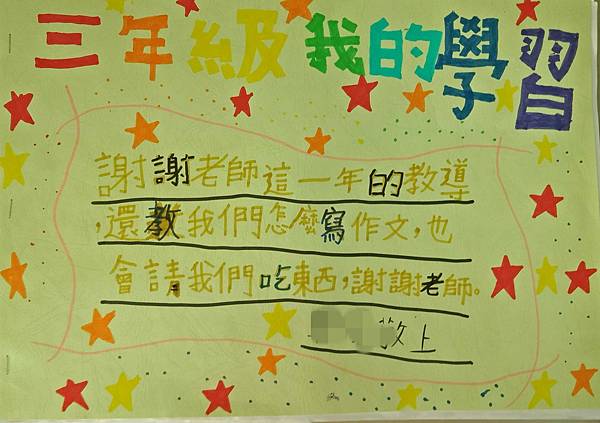 三年級我的學習
謝謝老師這一年的教導
,還教我們怎麼寫作文,也
會請我們吃東西,謝謝老師。
敬上